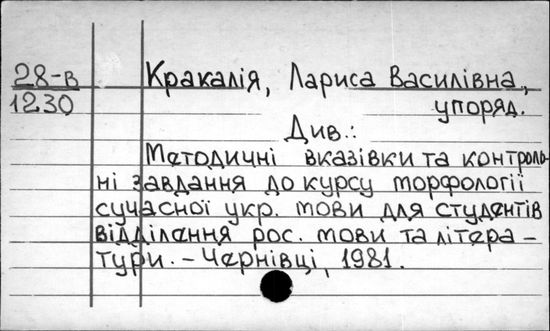 28-в
1230
Кракалія, Лариса Василівна,
упоряд.
Див.:
Методичні вказівки та контроль-
ні завдання до курсу морфології
сучасної укр. мови для студентів
відділення рос. мови та літера-
тури. - Чернівці, 1981.